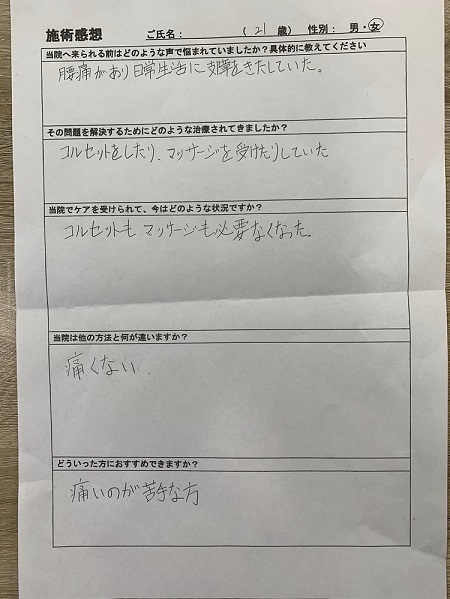 施術感想 ご氏名： （ 21 歳） 性別： 男・女
当院へ来られる前はどのような声で悩まれていましたか？具体的に教えてください
腰痛があり日常生活に支障をきたしていた。
その問題を解決するためにどのような治療されてきましたか？
コルセットをしたり、マッサージを受けたりしていた
当院でケアを受けられて、今はどのような状況ですか？
コルセットも、マッサージも必要なくなった。
当院は他の方法と何が違いますか？
痛くない、
どういった方におすすめできますか？
痛いのが苦手な方